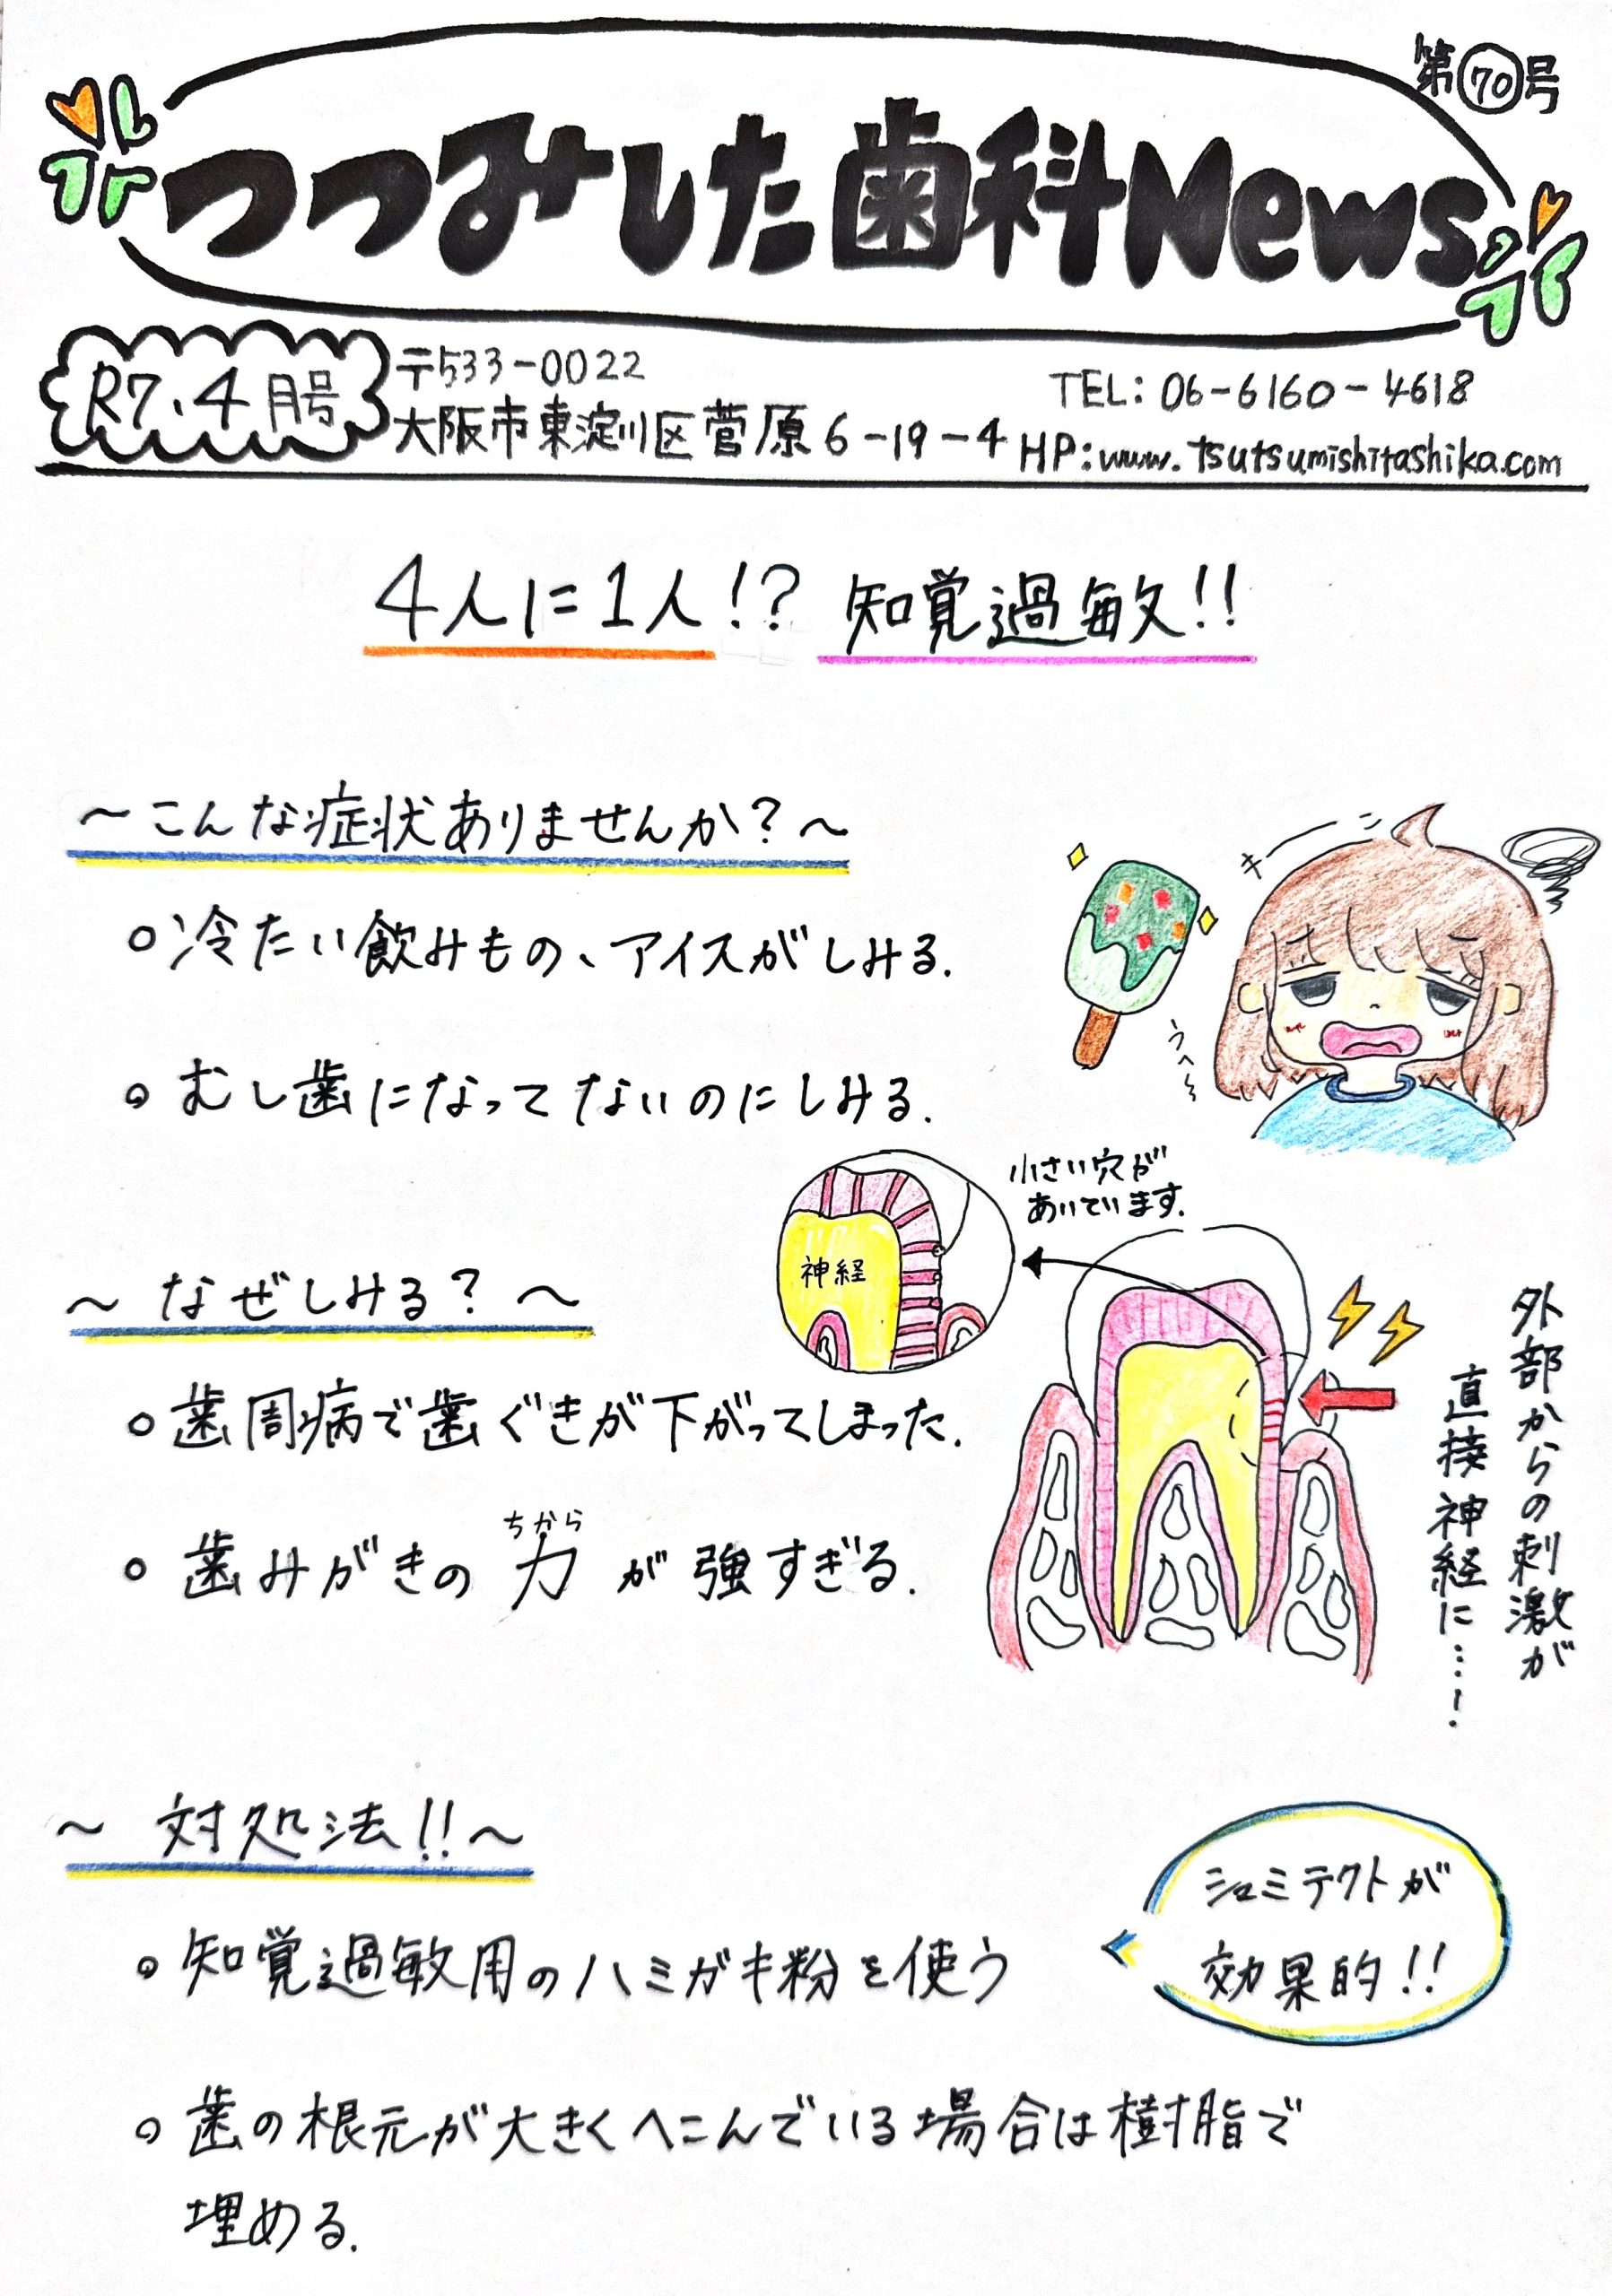 第70号
つつみした歯科News
R7.4月号
〒533-0022
大阪市東淀川区菅原6-19-4
TEL:06-6160-4618
HP:www.tsutsumishitashika.com
4人に1人!? 知覚過敏!!
～こんな症状ありませんか?～
○冷たい飲みもの、アイスがしみる.
○むし歯になってないのにしみる.
キーン
うへ～
～なぜしみる?～
○歯周病で歯ぐきが下がってしまった.
ちから
○歯みがきの力が強すぎる.
小さい穴が
あいています.
神経
外部からの刺激が
直接神経に…!
～対処法!!～
○知覚過敏用のハミガキ粉を使う
シュミテクトが
効果的!!
○歯の根元が大きくへこんでいる場合は樹脂で
埋める.